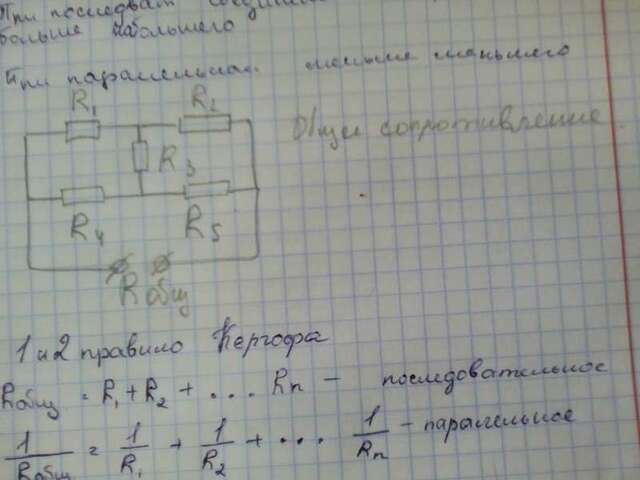 При последоват.
больше наибольшего
При паралельном. меньше меньшего
R1 R2
Общее сопротивление.
R3
R4 R5
R общ
1 и 2 правило Кергофа
Rобщ = R1 + R2 + ... Rn - последовательное
1/Rобщ = 1/R1 + 1/R2 + ... 1/Rn - паралельное